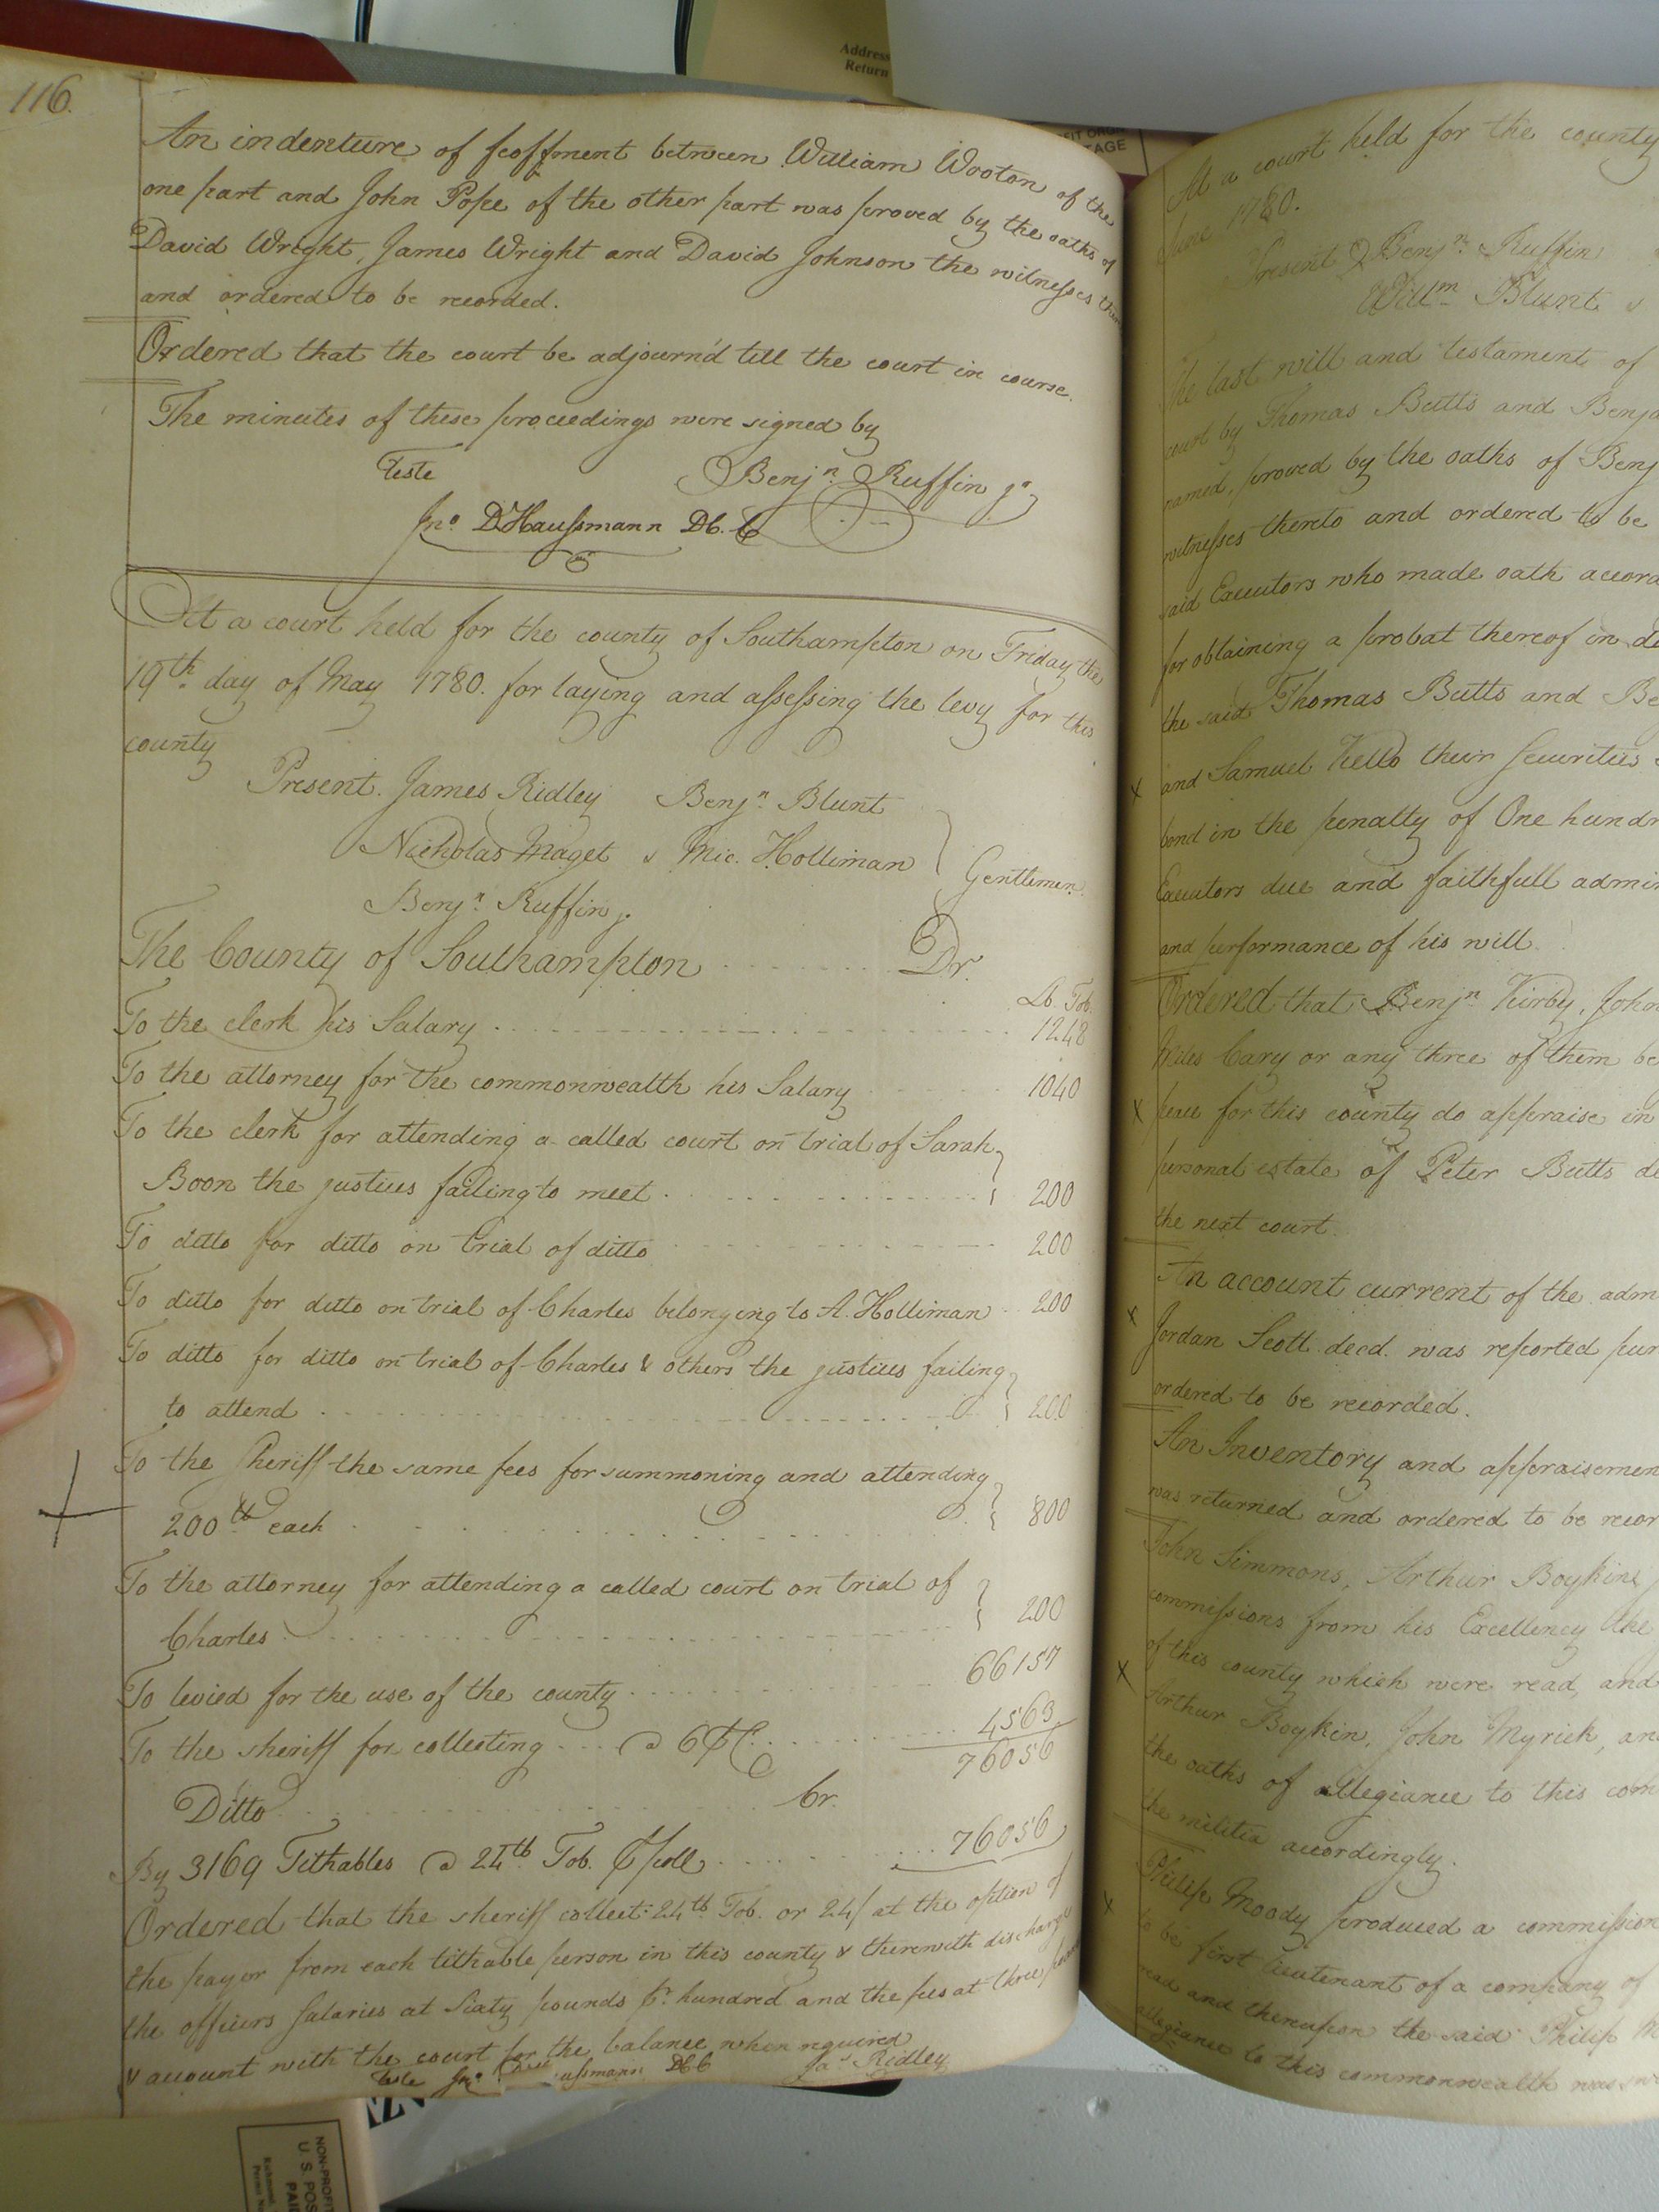 116.
An indenture of feoffment between William Wooton of the
one part and John Pope of the other part was proved by the oaths of
David Wright, James Wright and David Johnson the witnesses
and ordered to be recorded.
Ordered that the court be adjourn'd till the court in course.
The minutes of these proceedings were signed by
Teste
Benjn. Ruffin jr
Jno. D. Haussmann D C. C
At a court held for the county of Southampton on Friday the
19th. day of May 1780. for laying and assessing the levy for this
county
Present. James Ridley Benjn. Blunt
Nicholas Maget & Mic. Holliman
Gentlemen.
Benjn. Ruffin jr.
The County of Southampton Dr.
Lb. Tob.
To the clerk his Salary 1248
To the attorney for the commonwealth his Salary 1040
To the clerk for attending a called court on trial of Sarah
Boon the justices failing to meet 200
To ditto for ditto on trial of ditto 200
To ditto for ditto on trial of Charles belonging to A. Holliman 200
To ditto for ditto on trial of Charles & others the justices failing
to attend 200
To the Sheriff the same fees for summoning and attending
200 lb each 800
To the attorney for attending a called court on trial of
Charles 200
To levied for the use of the county 66157
To the sheriff for collecting @ 6 PC. 4563
76056
Ditto Cr.
By 3169 Tithables @ 24lb. Tob. P poll 76056
Ordered that the sheriff collect 24lb. Tob. or 24/ at the option of
the payer from each tithable person in this county & therewith discharge
the officers salaries at Sixty pounds pr. hundred and the fees at three
& account with the court for the balance when required
Teste Jno. ussmann D C C Jas. Ridley
At a court held for the county
June 1780.
Present Benjn. Ruffin
Willm Blunt &
The last will and testament of
court by Thomas Butts and Benja
named, proved by the oaths of Benj
witnesses thereto and ordered to be
said Executors who made oath accord
for obtaining a probat thereof in du
the said Thomas Butts and Be
and Samuel Kello their Securities
bond in the penalty of One hundr
Executors due and faithfull admin
and performance of his will.
Ordered that Benjn. Kirby, John
Miles Cary or any three of them be
peace for this county do appraise in
personal estate of Peter Butts de
the next court.
An account current of the adm
Jordan Scott decd. was reported pur
ordered to be recorded.
An Inventory and appraisemen
was returned and ordered to be recor
John Simmons, Arthur Boykin
commissions from his Excellency the
of this county which were read, and
Arthur Boykin, John Myrick, an
the oaths of allegiance to this com
the militia accordingly.
Philip Moody produced a commission
to be first lieutenant of a company of
read and thereupon the said Philip M
allegiance to this commonwealth was
Address
Return
TAGE
NON-PROFIT
U. S. POS
PAI